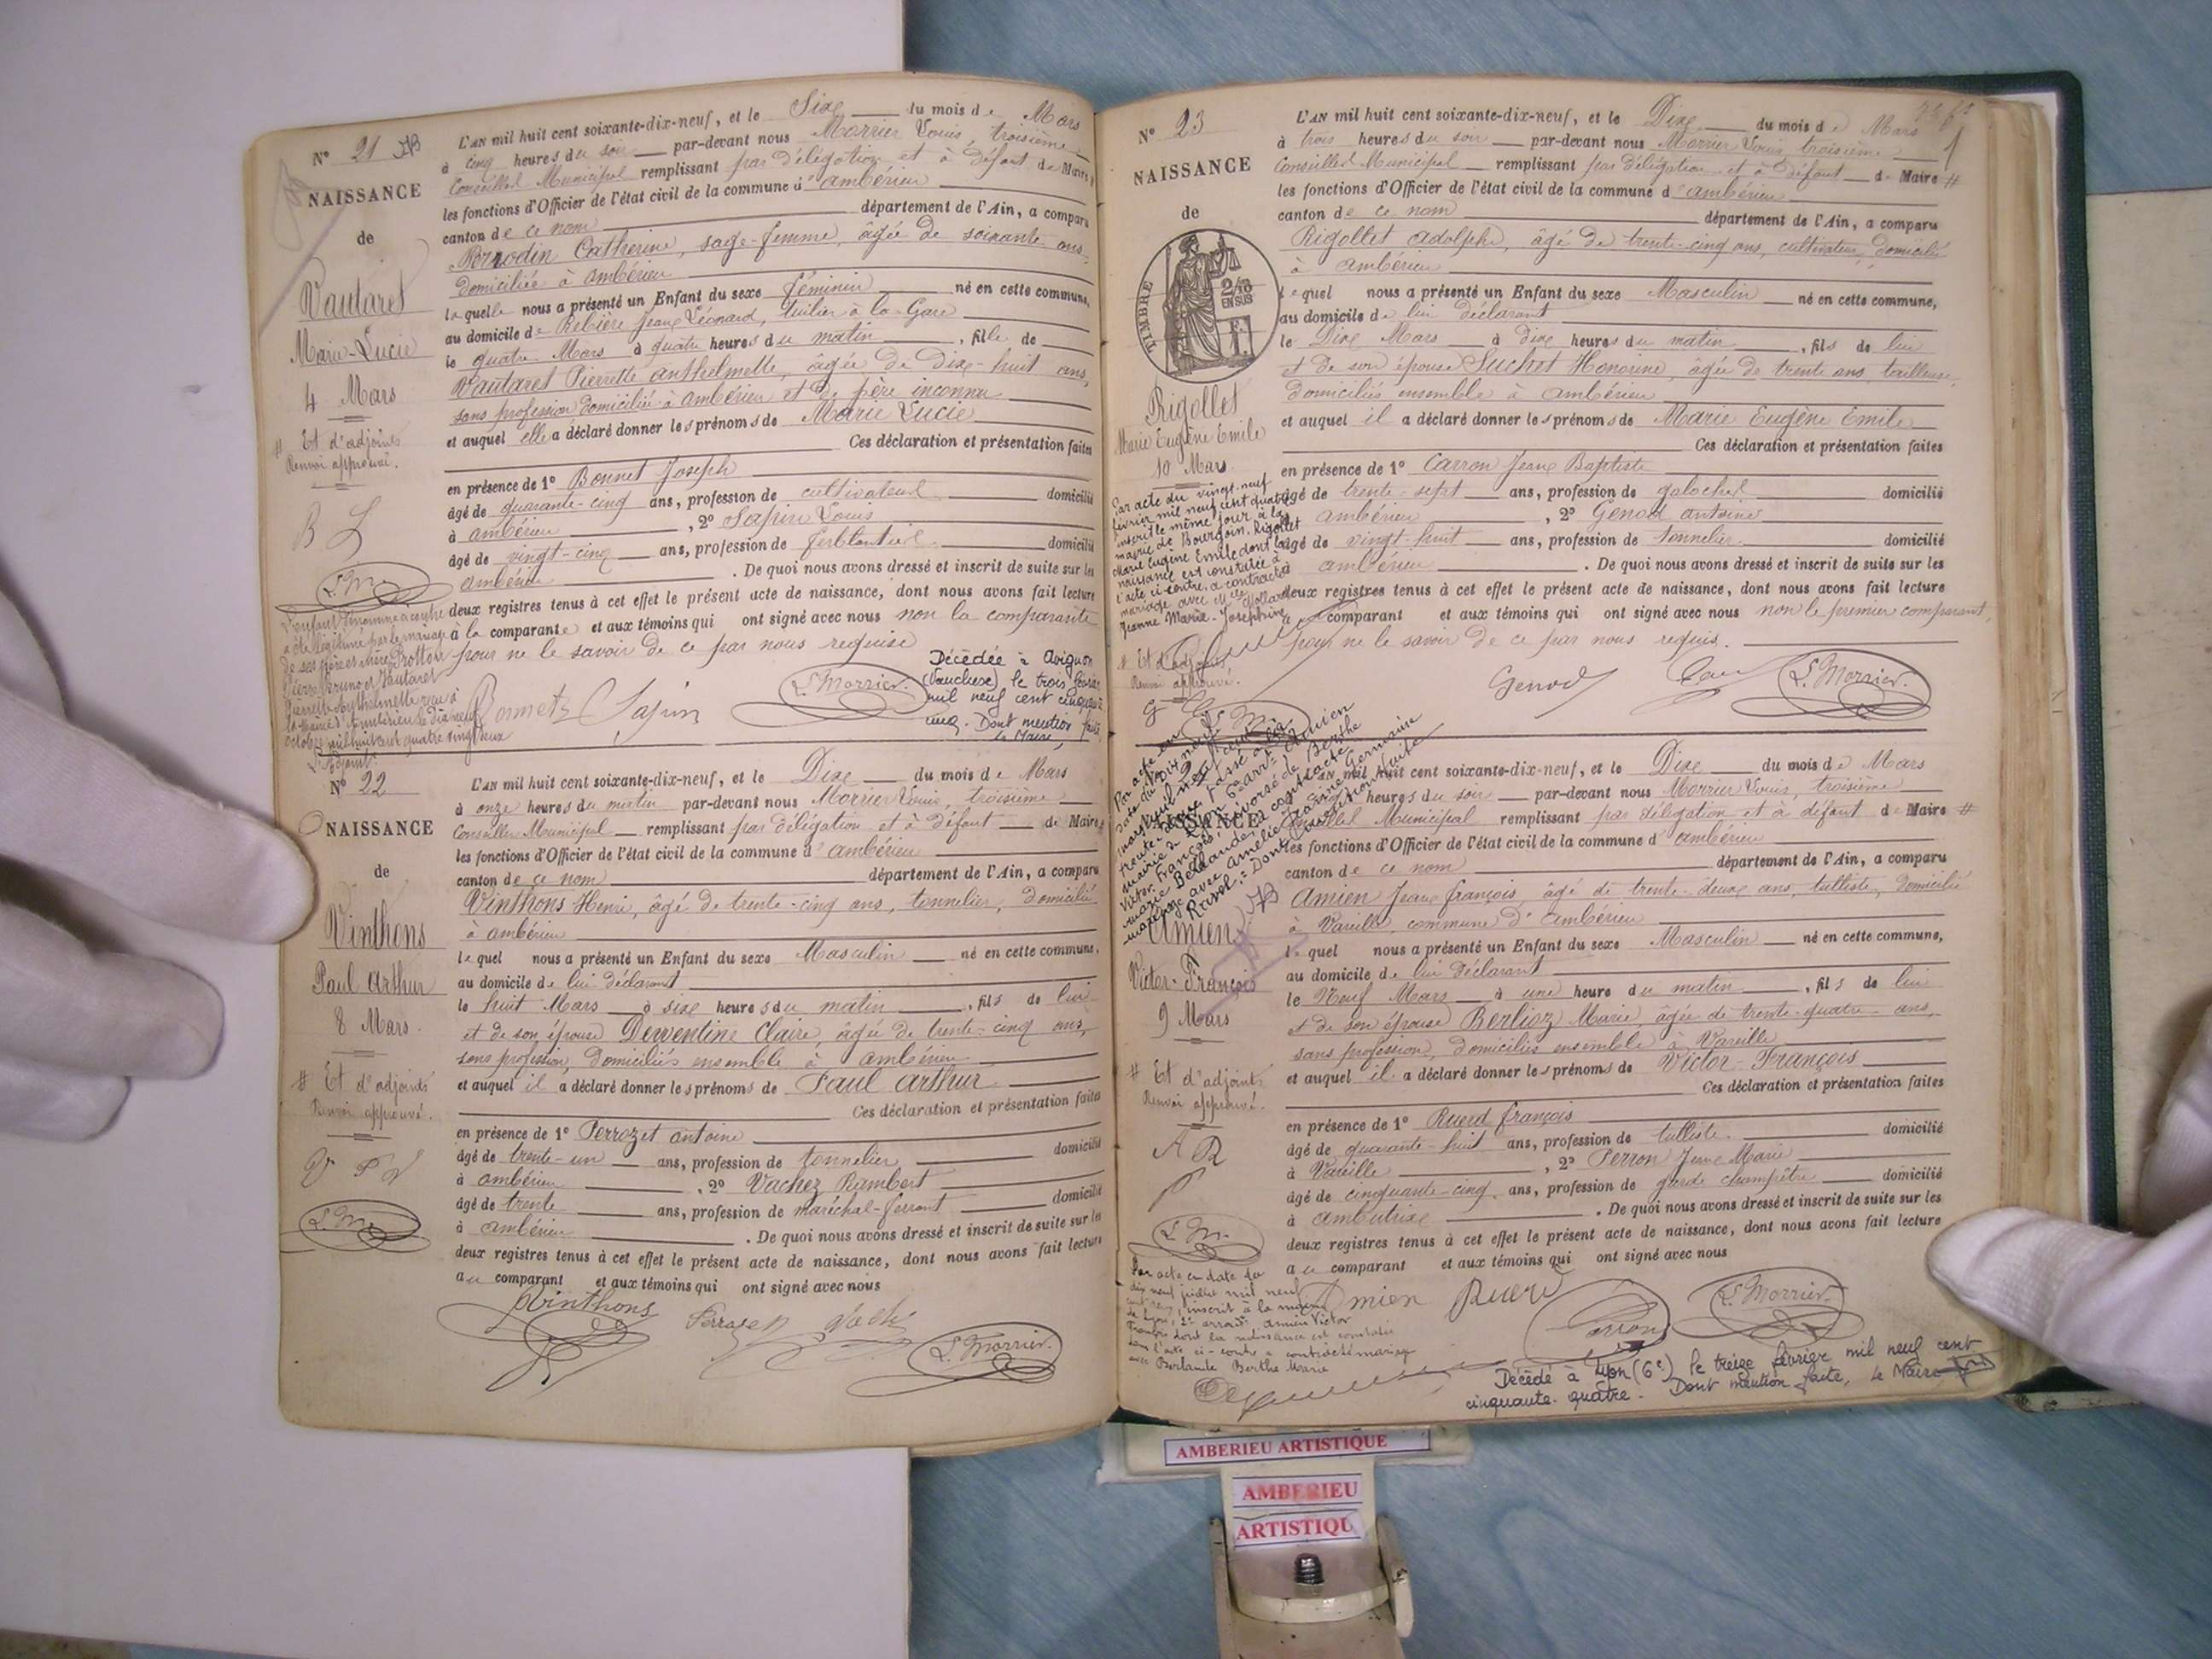 N° 21
NAISSANCE
de
Vautaret
Marie-Lucie
4 Mars
# Et d'adjoints
Renvoi approuvé.
B L
L'AN mil huit cent soixante-dix-neuf, et le Six du mois de Mars
à cinq heures du soir par-devant nous Morrier Louis, troisième
Conseiller Municipal remplissant par délégation et à défaut de Maire #
les fonctions d'Officier de l'état civil de la commune d'ambérieu
canton de ce nom département de l'Ain, a comparu
Catherine, sage-femme, âgée de soixante ans,
domiciliée à ambérieu
laquelle nous a présenté un Enfant du sexe féminin né en cette commune,
au domicile de Rebière Jean Léonard, tuilier à la Gare
le quatre Mars à quatre heures du matin, fille de
Vautaret Pierrette anthelmette, âgée de dix-huit ans,
sans profession domiciliée à ambérieu et de père inconnu
et auquel elle a déclaré donner les prénoms de Marie Lucie
Ces déclaration et présentation faites
en présence de 1° Bonnet Joseph
âgé de quarante-cinq ans, profession de cultivateur domicilié
à ambérieu, 2° Sapin Louis
âgé de vingt-cinq ans, profession de ferblantier domicilié
ambérieu. De quoi nous avons dressé et inscrit de suite sur les
deux registres tenus à cet effet le présent acte de naissance, dont nous avons fait lecture
à la comparante et aux témoins qui ont signé avec nous non la comparante
pour ne le savoir de ce par nous requise
Sapin L. Morrier.
Décédée à Avignon
(Vaucluse) le trois
mil neuf cent cinquante
cinq. Dont mention faite
Le Maire,
N° 22
NAISSANCE
de
Vinthons
Paul arthur
8 Mars
# Et d'adjoints
Renvoi approuvé.
L'AN mil huit cent soixante-dix-neuf, et le Dix du mois de Mars
à onze heures du matin par-devant nous Morrier Louis, troisième
Conseiller Municipal remplissant par délégation et à défaut de Maire #
les fonctions d'Officier de l'état civil de la commune d'ambérieu
canton de ce nom département de l'Ain, a comparu
Vinthons Henri, âgé de trente-cinq ans, tonnelier, domicilié
à ambérieu
lequel nous a présenté un Enfant du sexe Masculin né en cette commune,
au domicile de lui déclarant
le huit Mars à six heures du matin, fils de lui
et de son épouse Derventine Claire, âgée de trente-cinq ans,
sans profession, domiciliés ensemble à ambérieu
et auquel il a déclaré donner les prénoms de Paul arthur
Ces déclaration et présentation faites
en présence de 1° Perrozet antoine
âgé de trente-un ans, profession de tonnelier domicilié
à ambérieu, 2° Vachez Rambert
âgé de trente ans, profession de maréchal-ferrant domicilié
à ambérieu. De quoi nous avons dressé et inscrit de suite sur les
deux registres tenus à cet effet le présent acte de naissance, dont nous avons fait lecture
au comparant et aux témoins qui ont signé avec nous
Vinthons L. Morrier.
N° 23
NAISSANCE
de
TIMBRE
2/10
EN SUS
1 F.
Rigollet
Marie Eugène Emile
10 Mars
Par acte du vingt-neuf
février mil neuf cent quatre
inscrit le même jour à la
mairie de Bourgoin, Rigollet
Marie Eugène Emile dont la
naissance est constatée à
l'acte ci-contre, a contracté
mariage avec Melle
Jeanne Marie-Joséphine
# Et d'adjoints,
Renvoi approuvé.
L'AN mil huit cent soixante-dix-neuf, et le Dix du mois de Mars
à trois heures du soir par-devant nous Morrier Louis troisième
Conseiller Municipal remplissant par délégation et à défaut de Maire #
les fonctions d'Officier de l'état civil de la commune d'ambérieu
canton de ce nom département de l'Ain, a comparu
Rigollet adolphe, âgé de trente-cinq ans, cultivateur, domicilié
à ambérieu
lequel nous a présenté un Enfant du sexe Masculin né en cette commune,
au domicile de lui déclarant
le Dix Mars à dix heures du matin, fils de lui
et de son épouse Suchet Honorine, âgée de trente ans, tailleuse,
domiciliés ensemble à ambérieu
et auquel il a déclaré donner les prénoms de Marie Eugène Emile
Ces déclaration et présentation faites
en présence de 1° Carron Jean Baptiste
âgé de trente-sept ans, profession de galocher domicilié
ambérieu, 2° Genod antoine
âgé de vingt-huit ans, profession de tonnelier domicilié
à ambérieu. De quoi nous avons dressé et inscrit de suite sur les
deux registres tenus à cet effet le présent acte de naissance, dont nous avons fait lecture
comparant et aux témoins qui ont signé avec nous non le premier comparant,
pour ne le savoir de ce par nous requis.
Genod L. Morrier.
NAISSANCE
Amien
Victor-François
9 Mars
# Et d'adjoints
Renvoi approuvé.
L'AN mil huit cent soixante-dix-neuf, et le Dix du mois de Mars
heures du soir par-devant nous Morrier Louis, troisième
Conseiller Municipal remplissant par délégation et à défaut de Maire #
les fonctions d'Officier de l'état civil de la commune d'ambérieu
canton de ce nom département de l'Ain, a comparu
Amien Jean François, âgé de trente-deux ans, tulliste, domicilié
à Vareille, commune d'ambérieu
lequel nous a présenté un Enfant du sexe Masculin né en cette commune,
au domicile de lui déclarant
le Neuf Mars à une heure du matin, fils de lui
et de son épouse Berlioz Marie, âgée de trente-quatre ans,
sans profession, domiciliés ensemble à Vareille
et auquel il a déclaré donner les prénoms de Victor-François
Ces déclaration et présentation faites
en présence de 1° Ruerd françois
âgé de quarante-huit ans, profession de tulliste domicilié
à Vareille, 2° Perron Jean Marie
âgé de cinquante-cinq ans, profession de garde champêtre domicilié
à ambutrix. De quoi nous avons dressé et inscrit de suite sur les
deux registres tenus à cet effet le présent acte de naissance, dont nous avons fait lecture
au comparant et aux témoins qui ont signé avec nous
Amien Ruerd Perron L. Morrier.
Par acte en date du
dix neuf juillet mil neuf
inscrit à la mairie
de Lyon, 2e arrondt Amien Victor
François dont la naissance est constatée
dans l'acte ci-contre a contracté mariage
avec Berlande Berthe Marie
Décédé à Lyon (6e) le treize février mil neuf cent
cinquante-quatre. Dont mention faite, Le Maire
AMBERIEU ARTISTIQUE
AMBERIEU
ARTISTIQU